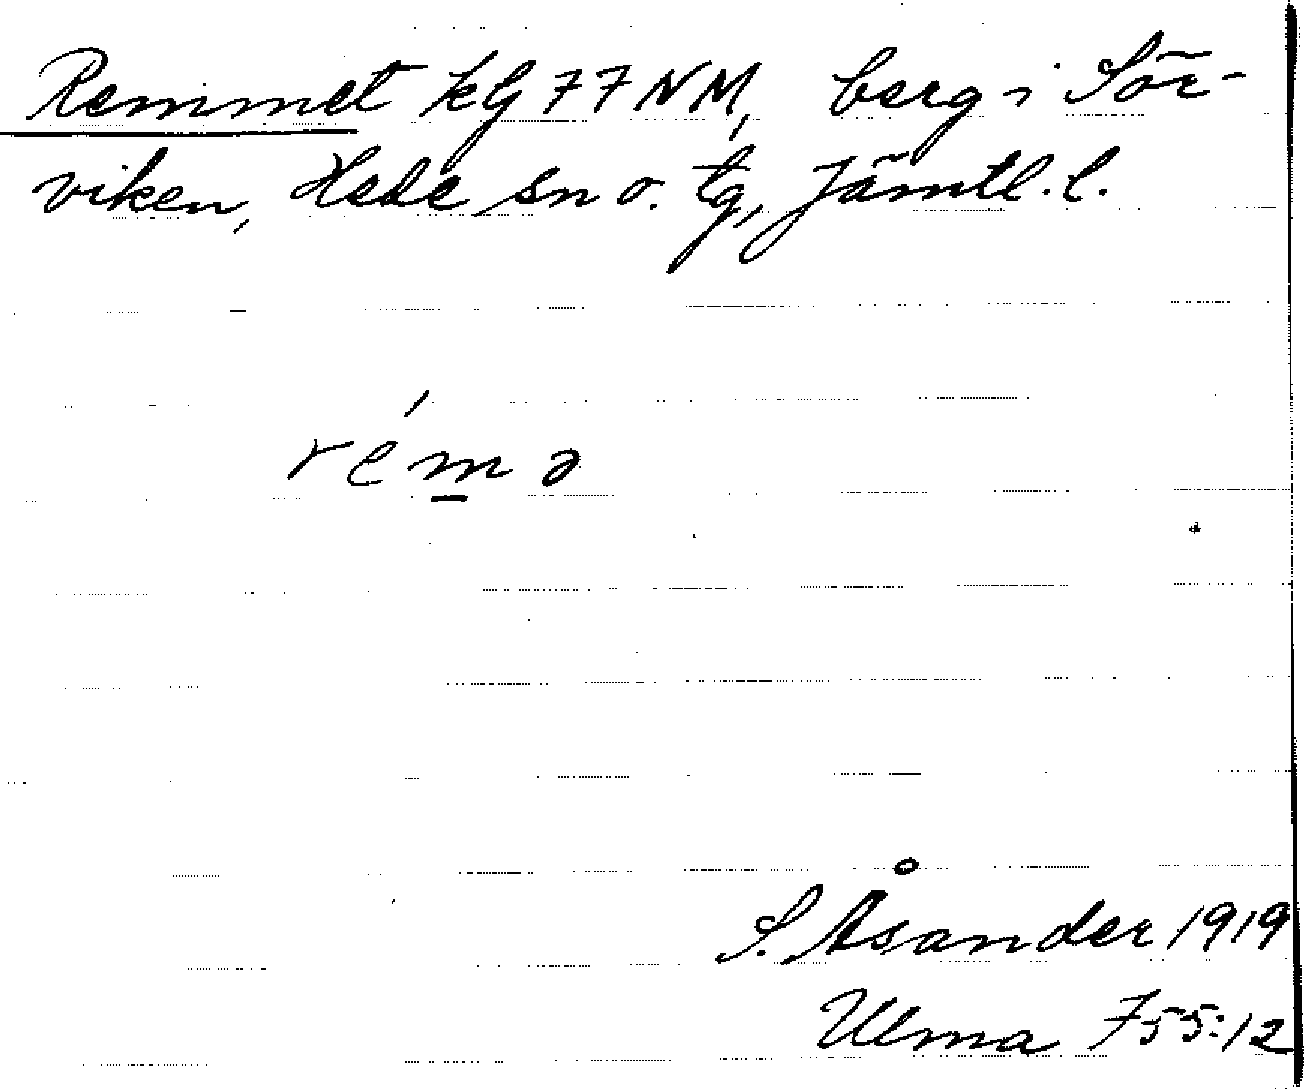 Remmet kG 77 NM, berg i Sör-
viken, Hede sn o. tg, Jämtl. l.
rém̲ə
S. Åsander 1919
Ulma 755:12